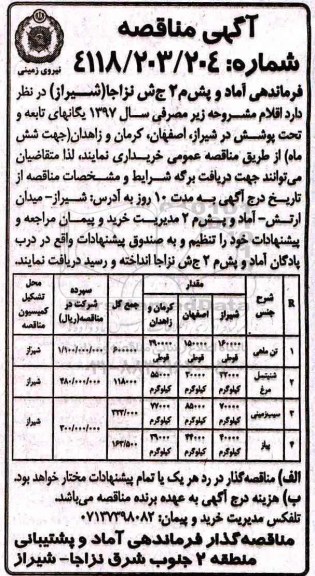 آگهی مناقصه
شماره: ۴۱۱۸/۲۰۳/۲۰۴
نیروی زمینی
فرماندهی آماد و پش م۲ ج ش نزاجا (شیراز) در نظر
دارد اقلام مشروحه زیر مصرفی سال ۱۳۹۷ یگانهای تابعه و
تحت پوشش در شیراز، اصفهان، کرمان و زاهدان (جهت شش
ماه) از طریق مناقصه عمومی خریداری نمایند، لذا متقاضیان
می‌توانند جهت دریافت برگه شرایط و مشخصات مناقصه از
تاریخ درج آگهی به مدت ۱۰ روز به آدرس: شیراز- میدان
ارتش- آماد و پش م ۲ مدیریت خرید و پیمان مراجعه و
پیشنهادات خود را تنظیم و به صندوق پیشنهادات واقع در درب
پادگان آماد و پش م ۲ ج ش نزاجا انداخته و رسید دریافت نمایند.
R شرح جنس مقدار جمع کل سپرده شرکت در مناقصه (ریال) محل تشکیل کمیسیون مناقصه
شیراز اصفهان کرمان و زاهدان
۱ تن ماهی ۱۶۰۰۰۰ قوطی ۱۵۰۰۰۰ قوطی ۲۹۰۰۰۰ قوطی ۶۰۰۰۰۰ ۱/۱۰۰/۰۰۰/۰۰۰ شیراز
۲ شنیتسل مرغ ۳۳۰۰۰ کیلوگرم ۳۰۰۰۰ کیلوگرم ۵۵۰۰۰ کیلوگرم ۱۱۸۰۰۰ ۳۸۰/۰۰۰/۰۰۰ شیراز
۳ سیب‌زمینی ۷۰۰۰۰ کیلوگرم ۸۵۰۰۰ کیلوگرم ۷۷۰۰۰ کیلوگرم ۲۳۲/۰۰۰ ۳۰۰/۰۰۰/۰۰۰ شیراز
۴ پیاز ۴۰۰۰۰ کیلوگرم ۴۴۰۰۰ کیلوگرم ۳۹۰۰۰ کیلوگرم ۱۶۳/۵۰۰
الف) مناقصه‌گذار در رد هر یک یا تمام پیشنهادات مختار خواهد بود.
ب) هزینه درج آگهی به عهده برنده مناقصه می‌باشد.
تلفکس مدیریت خرید و پیمان: ۰۷۱۳۷۳۹۸۰۸۲
مناقصه‌گذار فرماندهی آماد و پشتیبانی
منطقه ۲ جنوب شرق نزاجا- شیراز